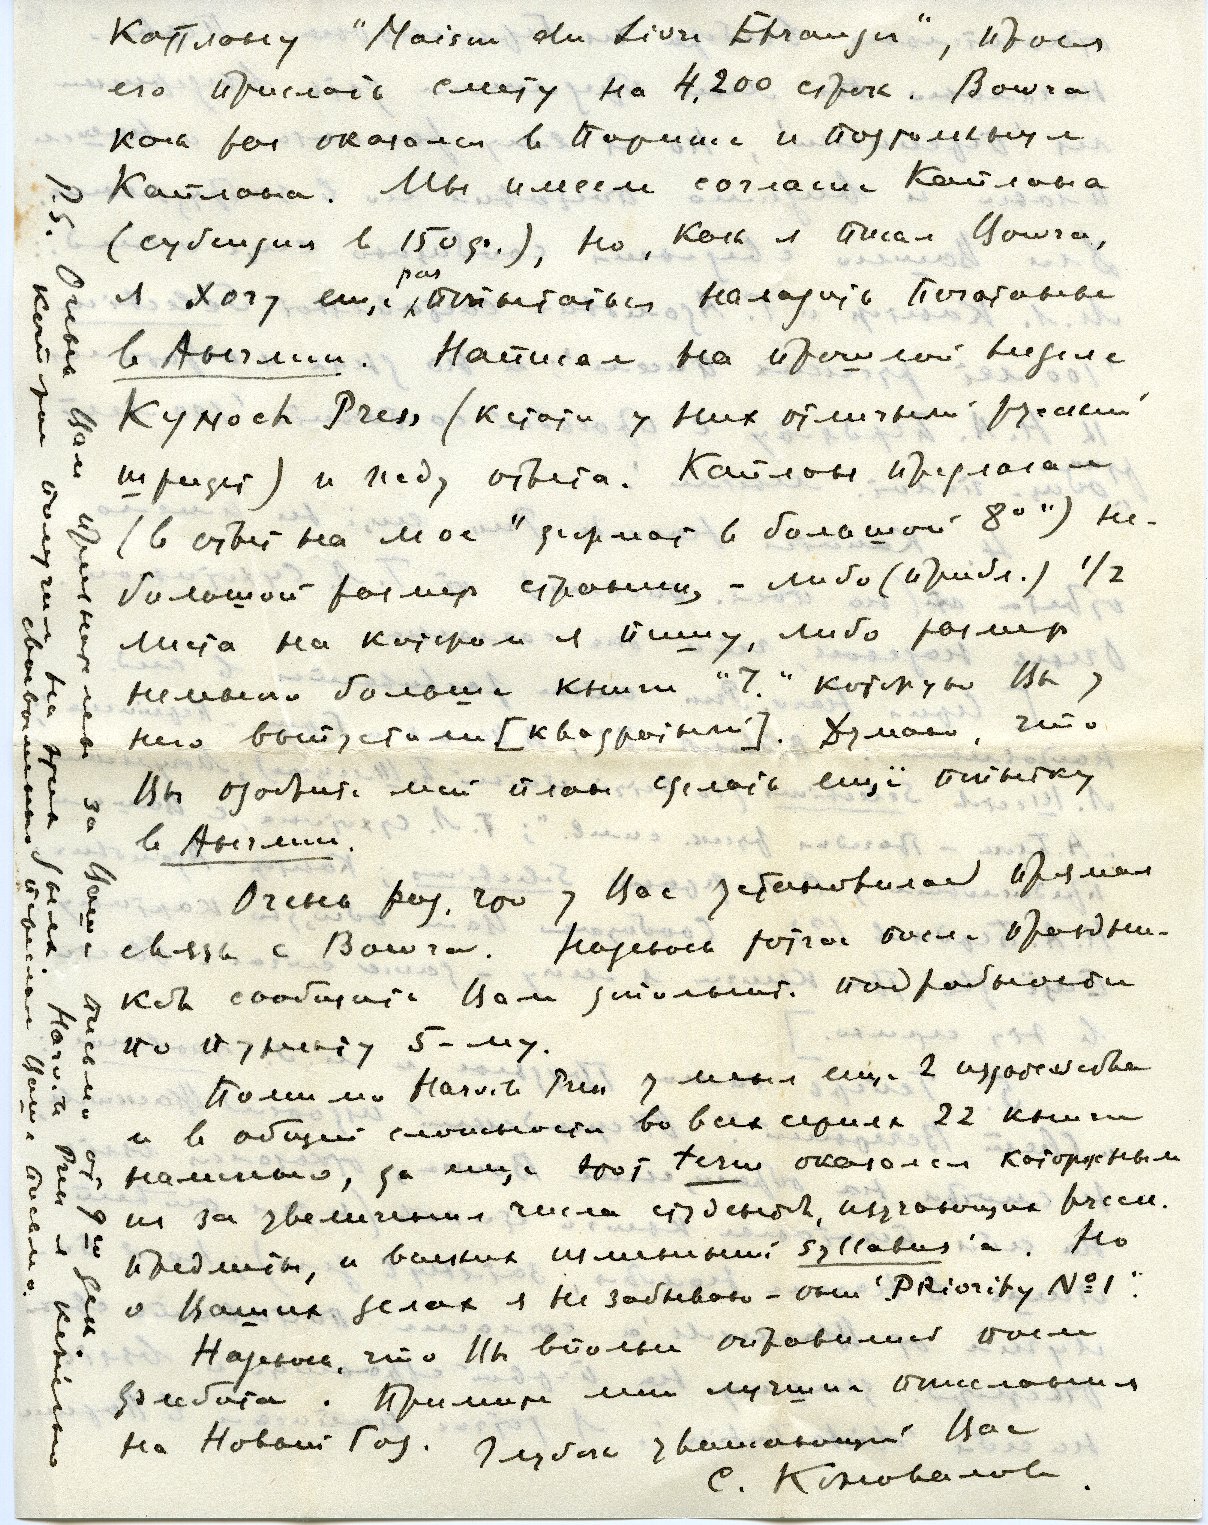 Каплану "Maison du Livre Etranger", прося
его прислать смету на 4,200 строк. Bowra
как раз оказался в Париже и подтолкнул
Каплана. Мы имеем согласие Каплана
(субсидия в 150 д.), но, как я писал Bowra,
я хочу еще раз попытаться наладить печатание
в Англии. Написал на прошлой неделе
Kynoch Press (кстати у них отличный русский
шрифт) и жду ответа. Каплан предлагал
(в ответ на мое "формат в большой 8°") не-
большой размер страниц, – либо (прибл.) 1/2
листа на котором я пишу, либо размер
немного больше книги "Т." которую Вы у
него выпустили [квадратный]. Думаю, что
Вы одобрите мой план сделать ещё попытку
в Англии.
Очень рад, что у Вас установилась прямая
связь с Bowra. Надеюсь тотчас после праздни-
ков сообщить Вам дополнит. подробности
по пункту 5-му.
Помимо Harvill Press у меня еще 2 издательства
и в общей сложности во всех сериях 22 книги
намечено, да еще этот term оказался каторжным
из за увеличения числа студентов, изучающих русск.
предметы, и всяких изменений syllabus'а. Но
о Ваших делах я не забываю – они "Priority No 1".
Надеюсь, что Вы вполне оправились после
флебита. Примите мои лучшие пожелания
на Новый Год. Глубоко уважающий Вас
С. Коновалов.
P.S. Очень Вам признателен за Ваше письмо от 9го дек.
которое получил на днях было. Harvill Press я
своевольно переслал Ваше письмо.